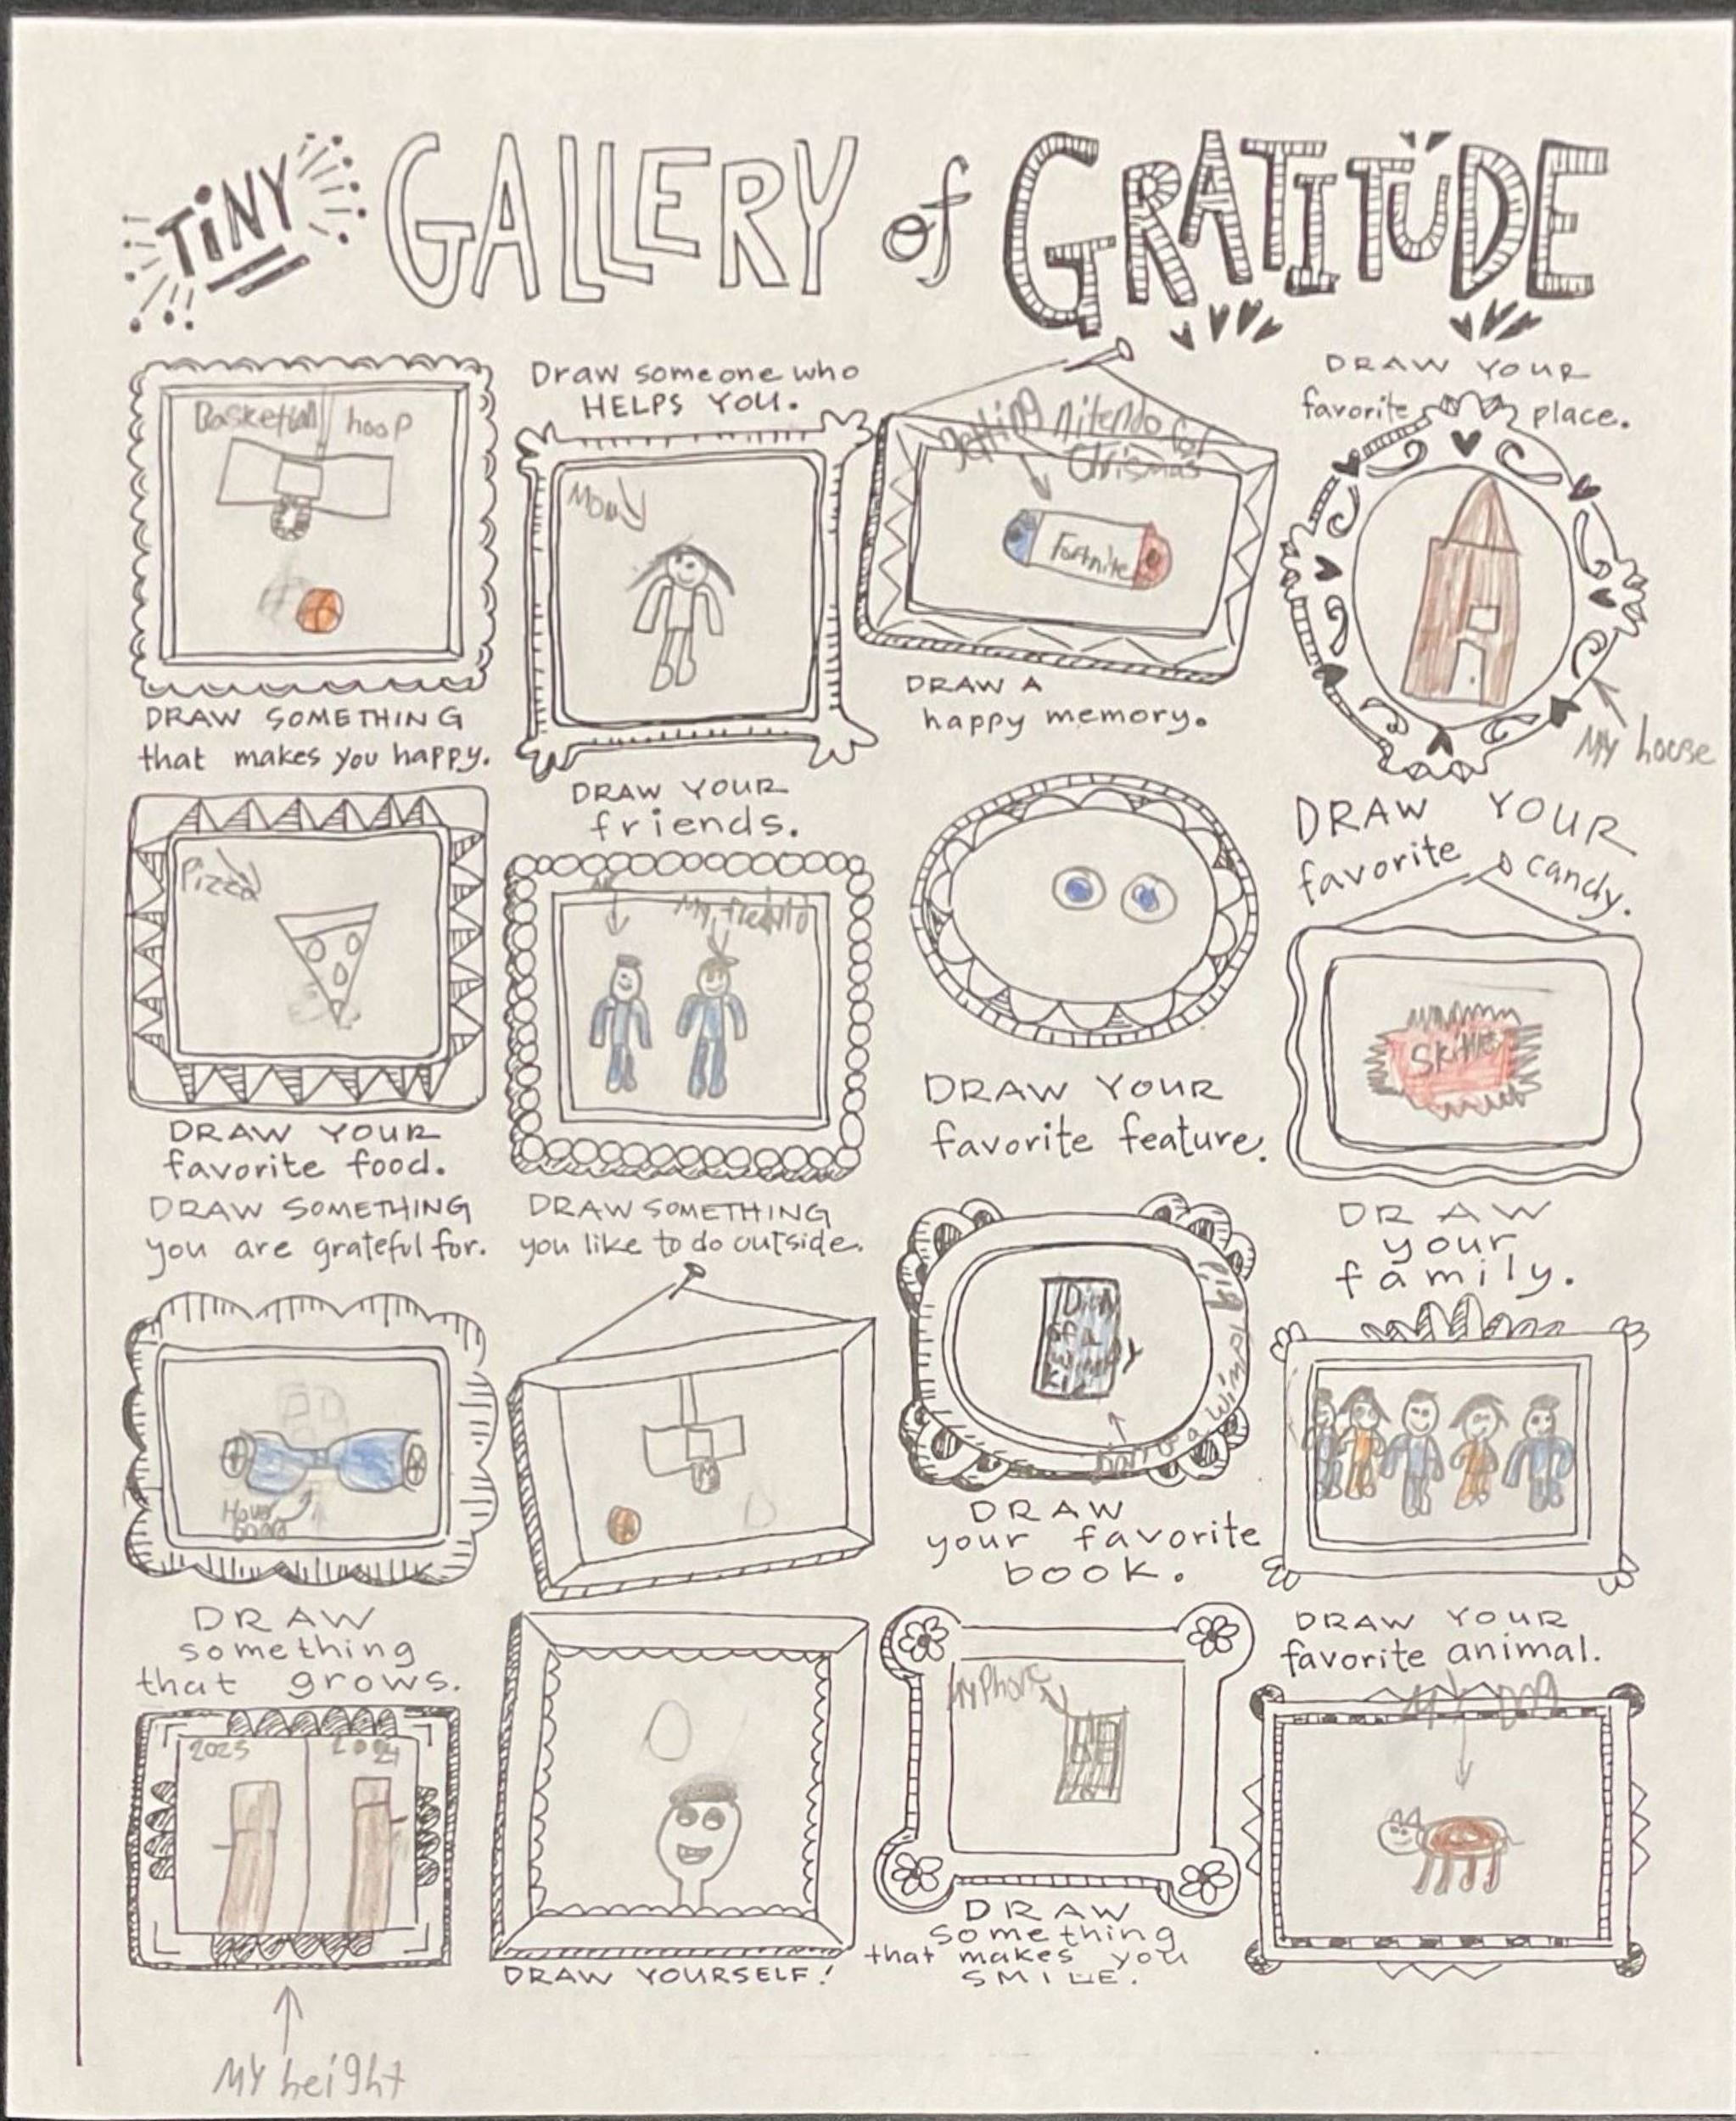 TiNY GALLERY of GRATITUDE
Basketball hoop
DRAW SOMETHING
that makes you happy.
Draw someone who
HELPS YOU.
Mom
getting nitendo for
Chrismas
Fortnite
DRAW A
happy memory.
DRAW YOUR
favorite place.
My house
Pizza
DRAW YOUR
favorite food.
DRAW YOUR
friends.
Me
My
DRAW YOUR
favorite feature.
DRAW YOUR
favorite candy.
Skittles
DRAW SOMETHING
you are grateful for.
Hover
board
DRAW SOMETHING
you like to do outside.
Diary
of a
wimpy
kid
Diary of a wimpy
DRAW
your favorite
book.
DRAW
your
family.
DRAW
something
that grows.
2025 2024
My height
DRAW YOURSELF!
My Phone
DRAW
something
that makes you
SMILE.
DRAW YOUR
favorite animal.
My